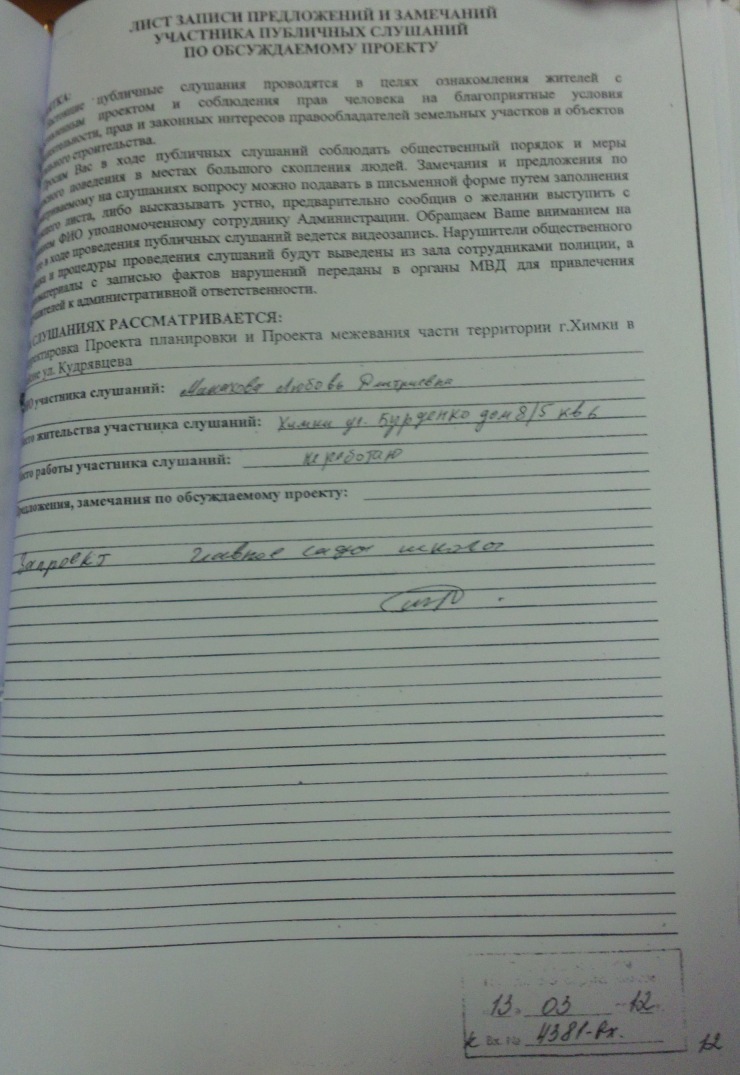 ЛИСТ ЗАПИСИ ПРЕДЛОЖЕНИЙ И ЗАМЕЧАНИЙ
УЧАСТНИКА ПУБЛИЧНЫХ СЛУШАНИЙ
ПО ОБСУЖДАЕМОМУ ПРОЕКТУ
публичные слушания проводятся в целях ознакомления жителей с
проектом и соблюдения прав человека на благоприятные условия
прав и законных интересов правообладателей земельных участков и объектов
строительства.
Вас в ходе публичных слушаний соблюдать общественный порядок и меры
поведения в местах большого скопления людей. Замечания и предложения по
на слушаниях вопросу можно подавать в письменной форме путем заполнения
листа, либо высказывать устно, предварительно сообщив о желании выступить с
ФИО уполномоченному сотруднику Администрации. Обращаем Ваше вниманием на
в ходе проведения публичных слушаний ведется видеозапись. Нарушители общественного
и процедуры проведения слушаний будут выведены из зала сотрудниками полиции, а
материалы с записью фактов нарушений переданы в органы МВД для привлечения
к административной ответственности.
СЛУШАНИЯХ РАССМАТРИВАЕТСЯ:
Проекта планировки и Проекта межевания части территории г.Химки в
ул. Кудрявцева
участника слушаний: Любовь Дмитриевна
жительства участника слушаний: Химки ул. Бурденко дом 8/5 кв 6
работы участника слушаний: не работаю
замечания по обсуждаемому проекту:
За проект главное сады школы
13 03 12
Вх. № 4381-Вх.
12